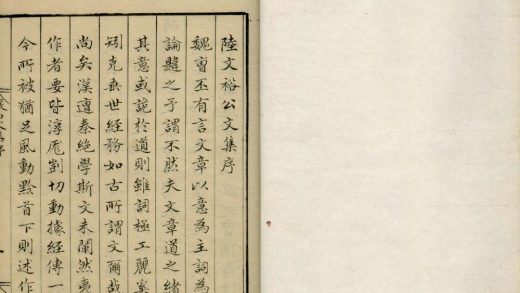 陸文裕公文集序
魏曹丕有言文章以意為主詞為
論韙之予謂不然夫文章道之緒
其意或詭於道則雖詞極工麗奚
矧克垂世經務如古所謂文爾哉
尚矣漢秦絕學斯文未闡然
作者要皆淳厖剴切動據經傳一
今所被猶足風動黔首下則述作